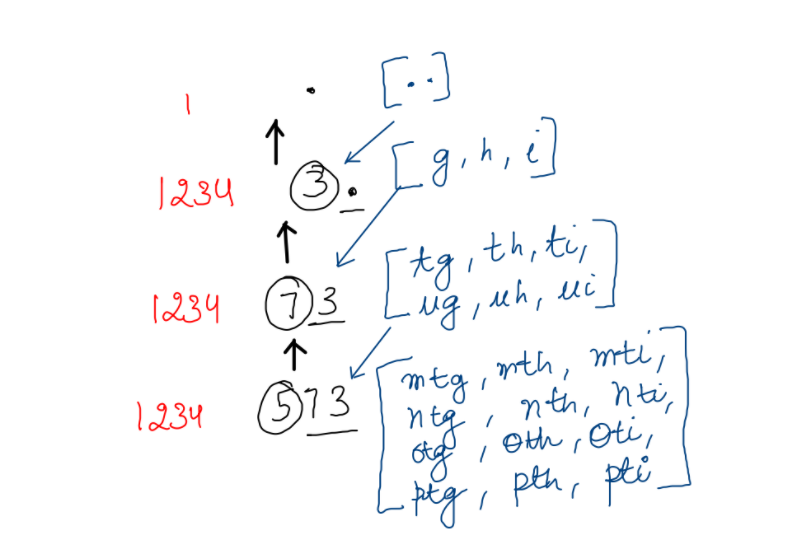 1 . [..]
1234 3. [g, h, i]
1234 73 [tg, th, ti,
ug, uh, ui]
1234 573 [mtg, mth, mti,
ntg, nth, nti,
otg, oth, oti,
ptg, pth, pti]